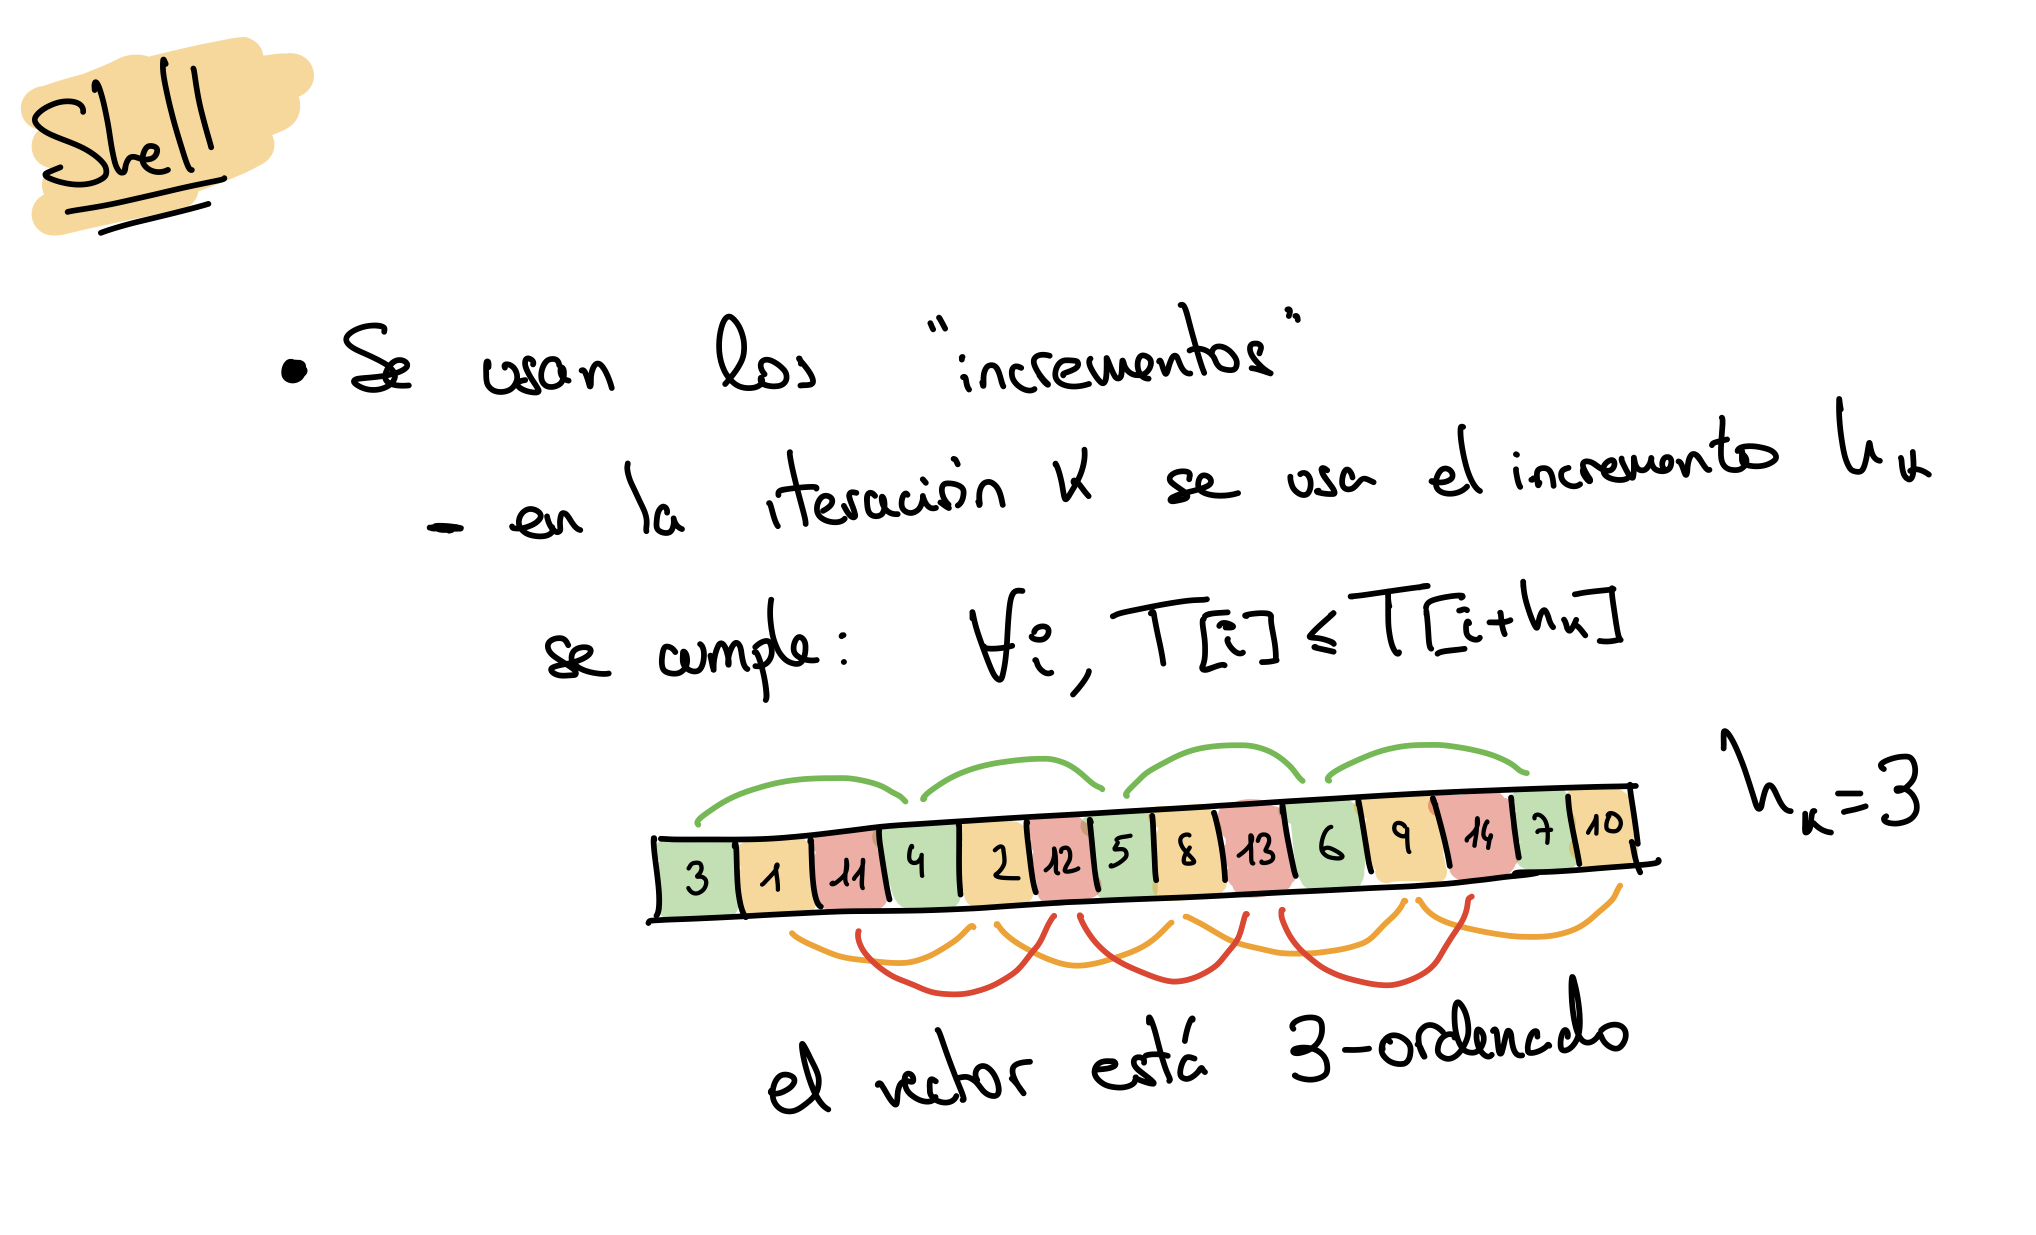 Shell
• Se usan los "incrementos"
- en la iteración K se usa el incremento hₖ
se cumple: ∀i, T[i] ≤ T[i+hₖ]
hₖ=3
3 1 11 4 2 12 5 8 13 6 9 14 7 10
el vector está 3-ordenado